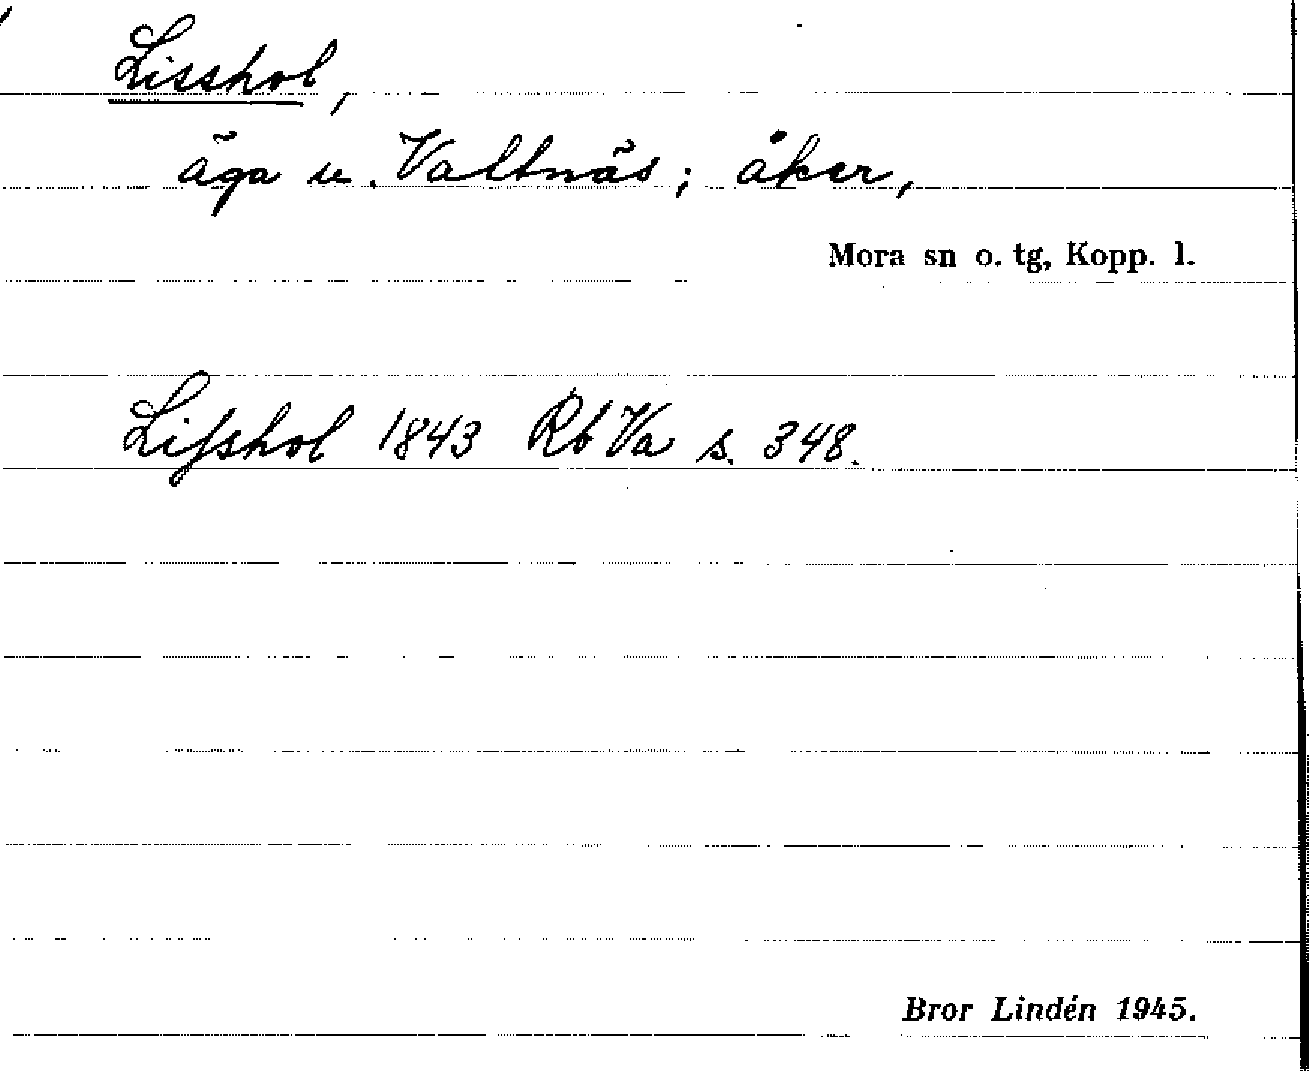 Lisshol,
äga u. Valtnäs; åker,
Mora sn o. tg, Kopp. l.
Liſshol 1843 Rb Va s. 348.
Bror Lindén 1945.